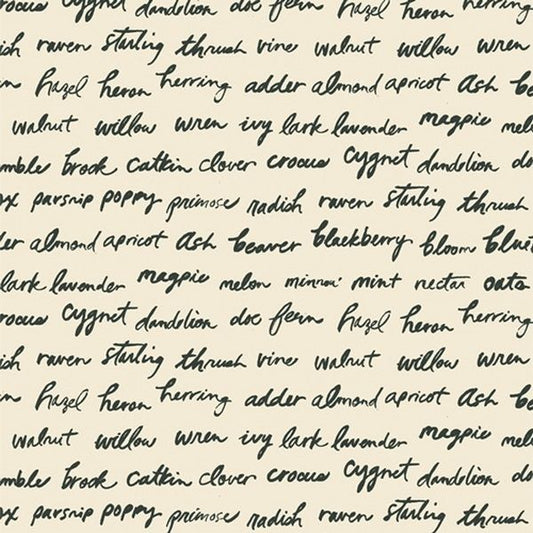 crocus cygnet dandelion doe fern hazel heron herring
radish raven starling thrush vine walnut willow wren
hazel heron herring adder almond apricot ash
walnut willow wren ivy lark lavender magpie mel
mble brook catkin clover crocus cygnet dandelion do
ox parsnip poppy primose radish raven starling thrush
er almond apricot ash beaver blackberry bloom blue
lark lavender magpie melon minnow mint nectar oats
rocus cygnet dandelion doe fern hazel heron herring
ish raven starling thrush vine walnut willow wren
n hazel heron herring adder almond apricot ash be
walnut willow wren ivy lark lavender magpie mel
mble brook catkin clover crocus cygnet dandelion do
ox parsnip poppy primose radish raven starling thrush